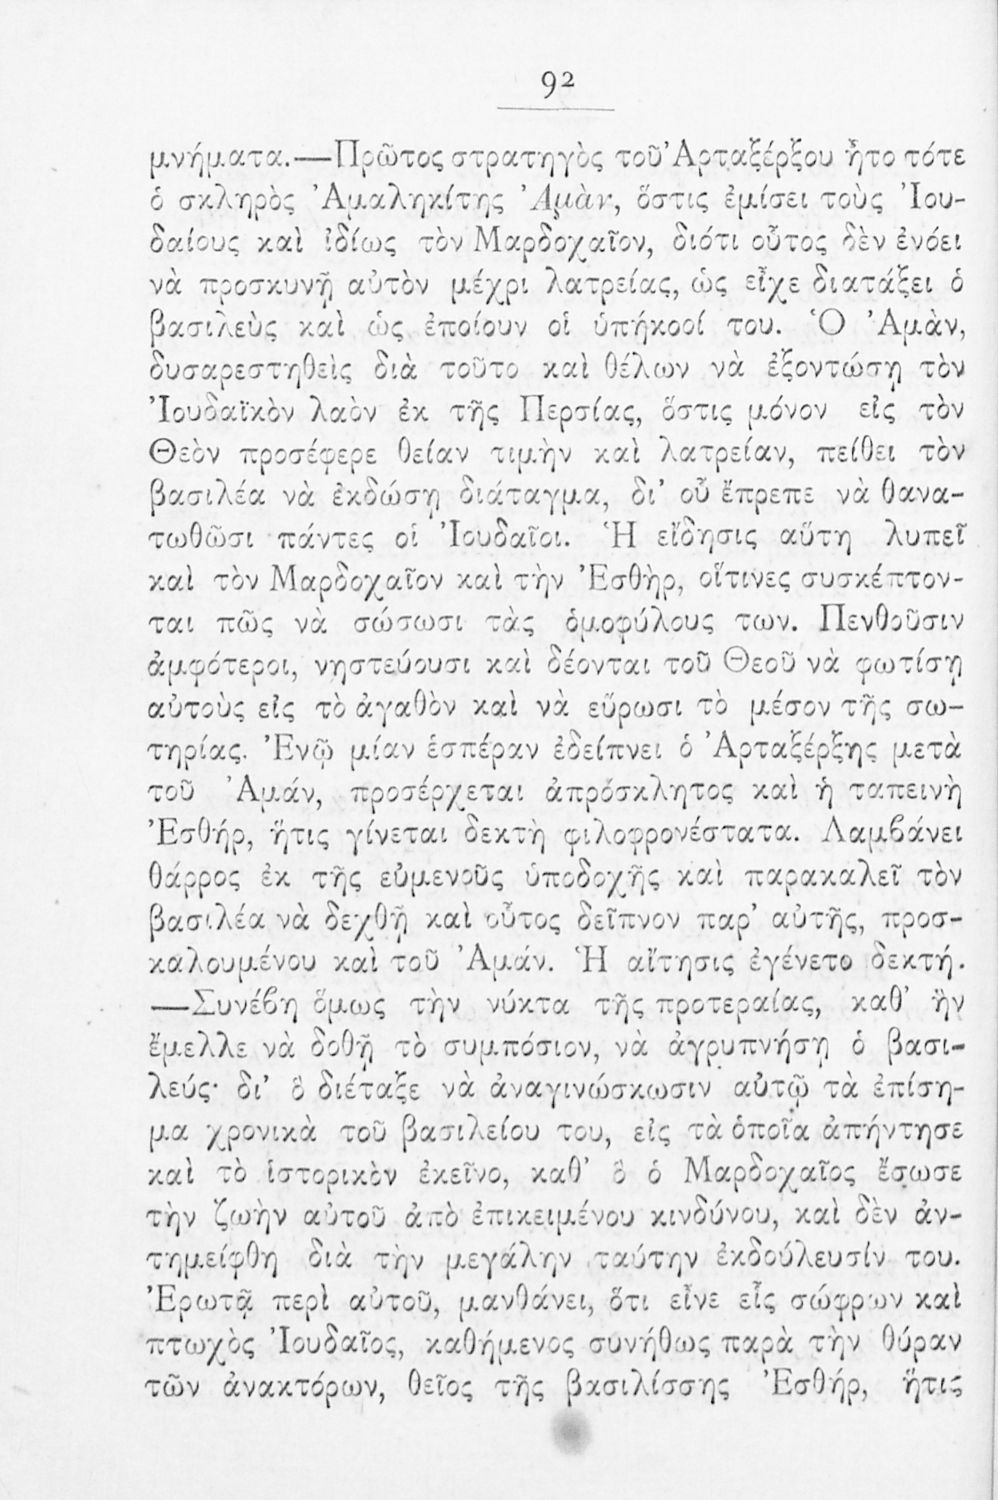 92
μνήματα.—Πρῶτος στρατηγὸς τοῦ Ἀρταξέρξου ἦτο τότε
ὁ σκληρὸς Ἀμαληκίτης Ἀμὰν, ὅστις ἐμίσει τοὺς Ἰου-
δαίους καὶ ἰδίως τὸν Μαρδοχαῖον, διότι οὗτος δὲν ἐνόει
νὰ προσκυνῇ αὐτὸν μέχρι λατρείας, ὡς εἶχε διατάξει ὁ
βασιλεὺς καὶ ὡς ἐποίουν οἱ ὑπήκοοί του. Ὁ Ἀμὰν,
δυσαρεστηθεὶς διὰ τοῦτο καὶ θέλων νὰ ἐξοντώσῃ τὸν
Ἰουδαϊκὸν λαὸν ἐκ τῆς Περσίας, ὅστις μόνον εἰς τὸν
Θεὸν προσέφερε θείαν τιμὴν καὶ λατρείαν, πείθει τὸν
βασιλέα νὰ ἐκδώσῃ διάταγμα, δι' οὗ ἔπρεπε νὰ θανα-
τωθῶσι πάντες οἱ Ἰουδαῖοι. Ἡ εἴδησις αὕτη λυπεῖ
καὶ τὸν Μαρδοχαῖον καὶ τὴν Ἐσθὴρ, οἵτινες συσκέπτον-
ται πῶς νὰ σώσωσι τὰς ὁμοφύλους των. Πενθοῦσιν
ἀμφότεροι, νηστεύουσι καὶ δέονται τοῦ Θεοῦ νὰ φωτίσῃ
αὐτοὺς εἰς τὸ ἀγαθὸν καὶ νὰ εὕρωσι τὸ μέσον τῆς σω-
τηρίας. Ἐνῷ μίαν ἑσπέραν ἐδείπνει ὁ Ἀρταξέρξης μετὰ
τοῦ Ἀμάν, προσέρχεται ἀπρόσκλητος καὶ ἡ ταπεινὴ
Ἐσθήρ, ἥτις γίνεται δεκτὴ φιλοφρονέστατα. Λαμβάνει
θάρρος ἐκ τῆς εὐμενοῦς ὑποδοχῆς καὶ παρακαλεῖ τὸν
βασιλέα νὰ δεχθῇ καὶ οὗτος δεῖπνον παρ' αὐτῆς, προσ-
καλουμένου καὶ τοῦ Ἀμάν. Ἡ αἴτησις ἐγένετο δεκτή.
—Συνέβη ὅμως τὴν νύκτα τῆς προτεραίας, καθ' ἣν
ἔμελλε νὰ δοθῇ τὸ συμπόσιον, νὰ ἀγρυπνήσῃ ὁ βασι-
λεύς· δι' ὃ διέταξε νὰ ἀναγινώσκωσιν αὐτῷ τὰ ἐπίση-
μα χρονικὰ τοῦ βασιλείου του, εἰς τὰ ὁποῖα ἀπήντησε
καὶ τὸ ἱστορικὸν ἐκεῖνο, καθ' ὃ ὁ Μαρδοχαῖος ἔσωσε
τὴν ζωὴν αὐτοῦ ἀπὸ ἐπικειμένου κινδύνου, καὶ δὲν ἀν-
τημείφθη διὰ τὴν μεγάλην ταύτην ἐκδούλευσίν του.
Ἐρωτᾷ περὶ αὐτοῦ, μανθάνει, ὅτι εἶνε εἷς σώφρων καὶ
πτωχὸς Ἰουδαῖος, καθήμενος συνήθως παρὰ τὴν θύραν
τῶν ἀνακτόρων, θεῖος τῆς βασιλίσσης Ἐσθήρ, ἥτις